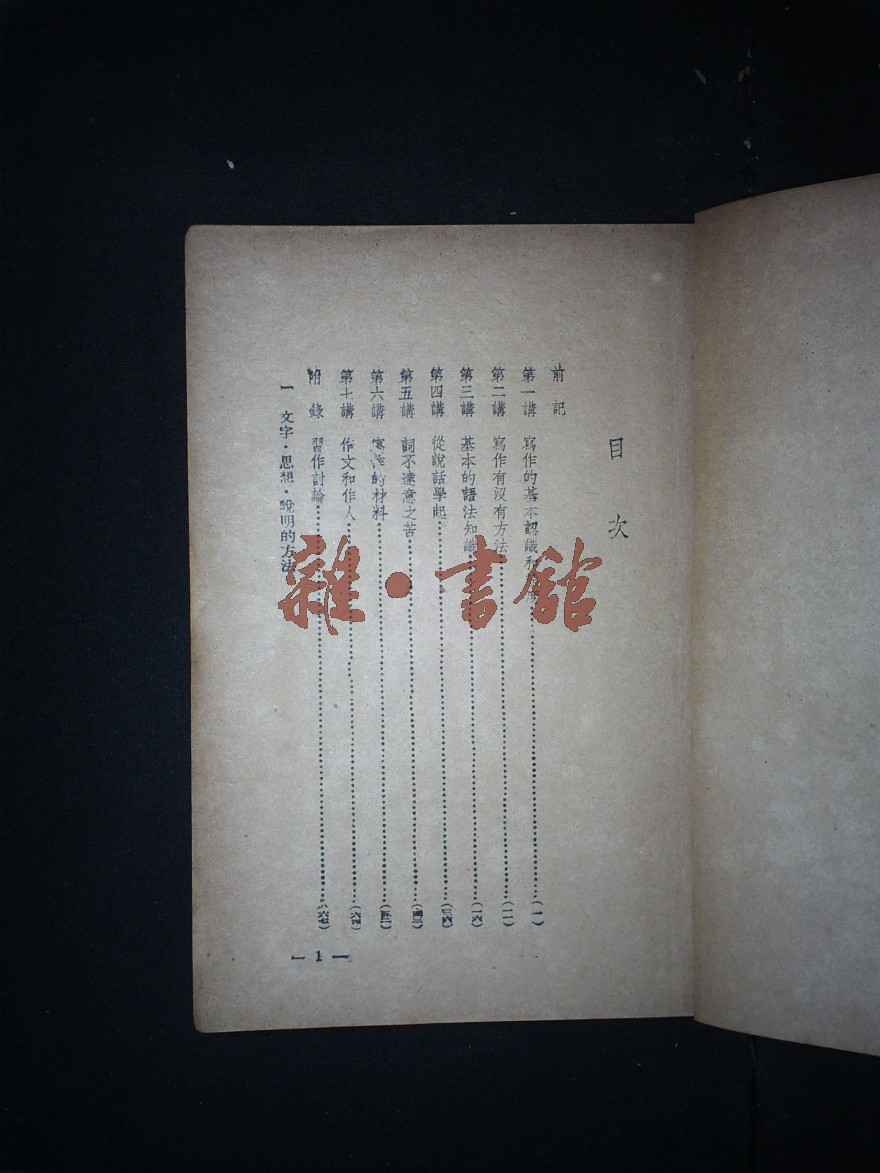 目次
前記
第一講 寫作的基本認識和………(一)
第二講 寫作有沒有方法………(一一)
第三講 基本的語法知識………(一六)
第四講 從說話學起………(三六)
第五講 詞不達意之苦………(四三)
第六講 寫作的材料………(五二)
第七講 作文和作人………(六四)
附錄 習作討論………(六七)
一 文字·思想·說明的方法
— 1 —
雜·書館